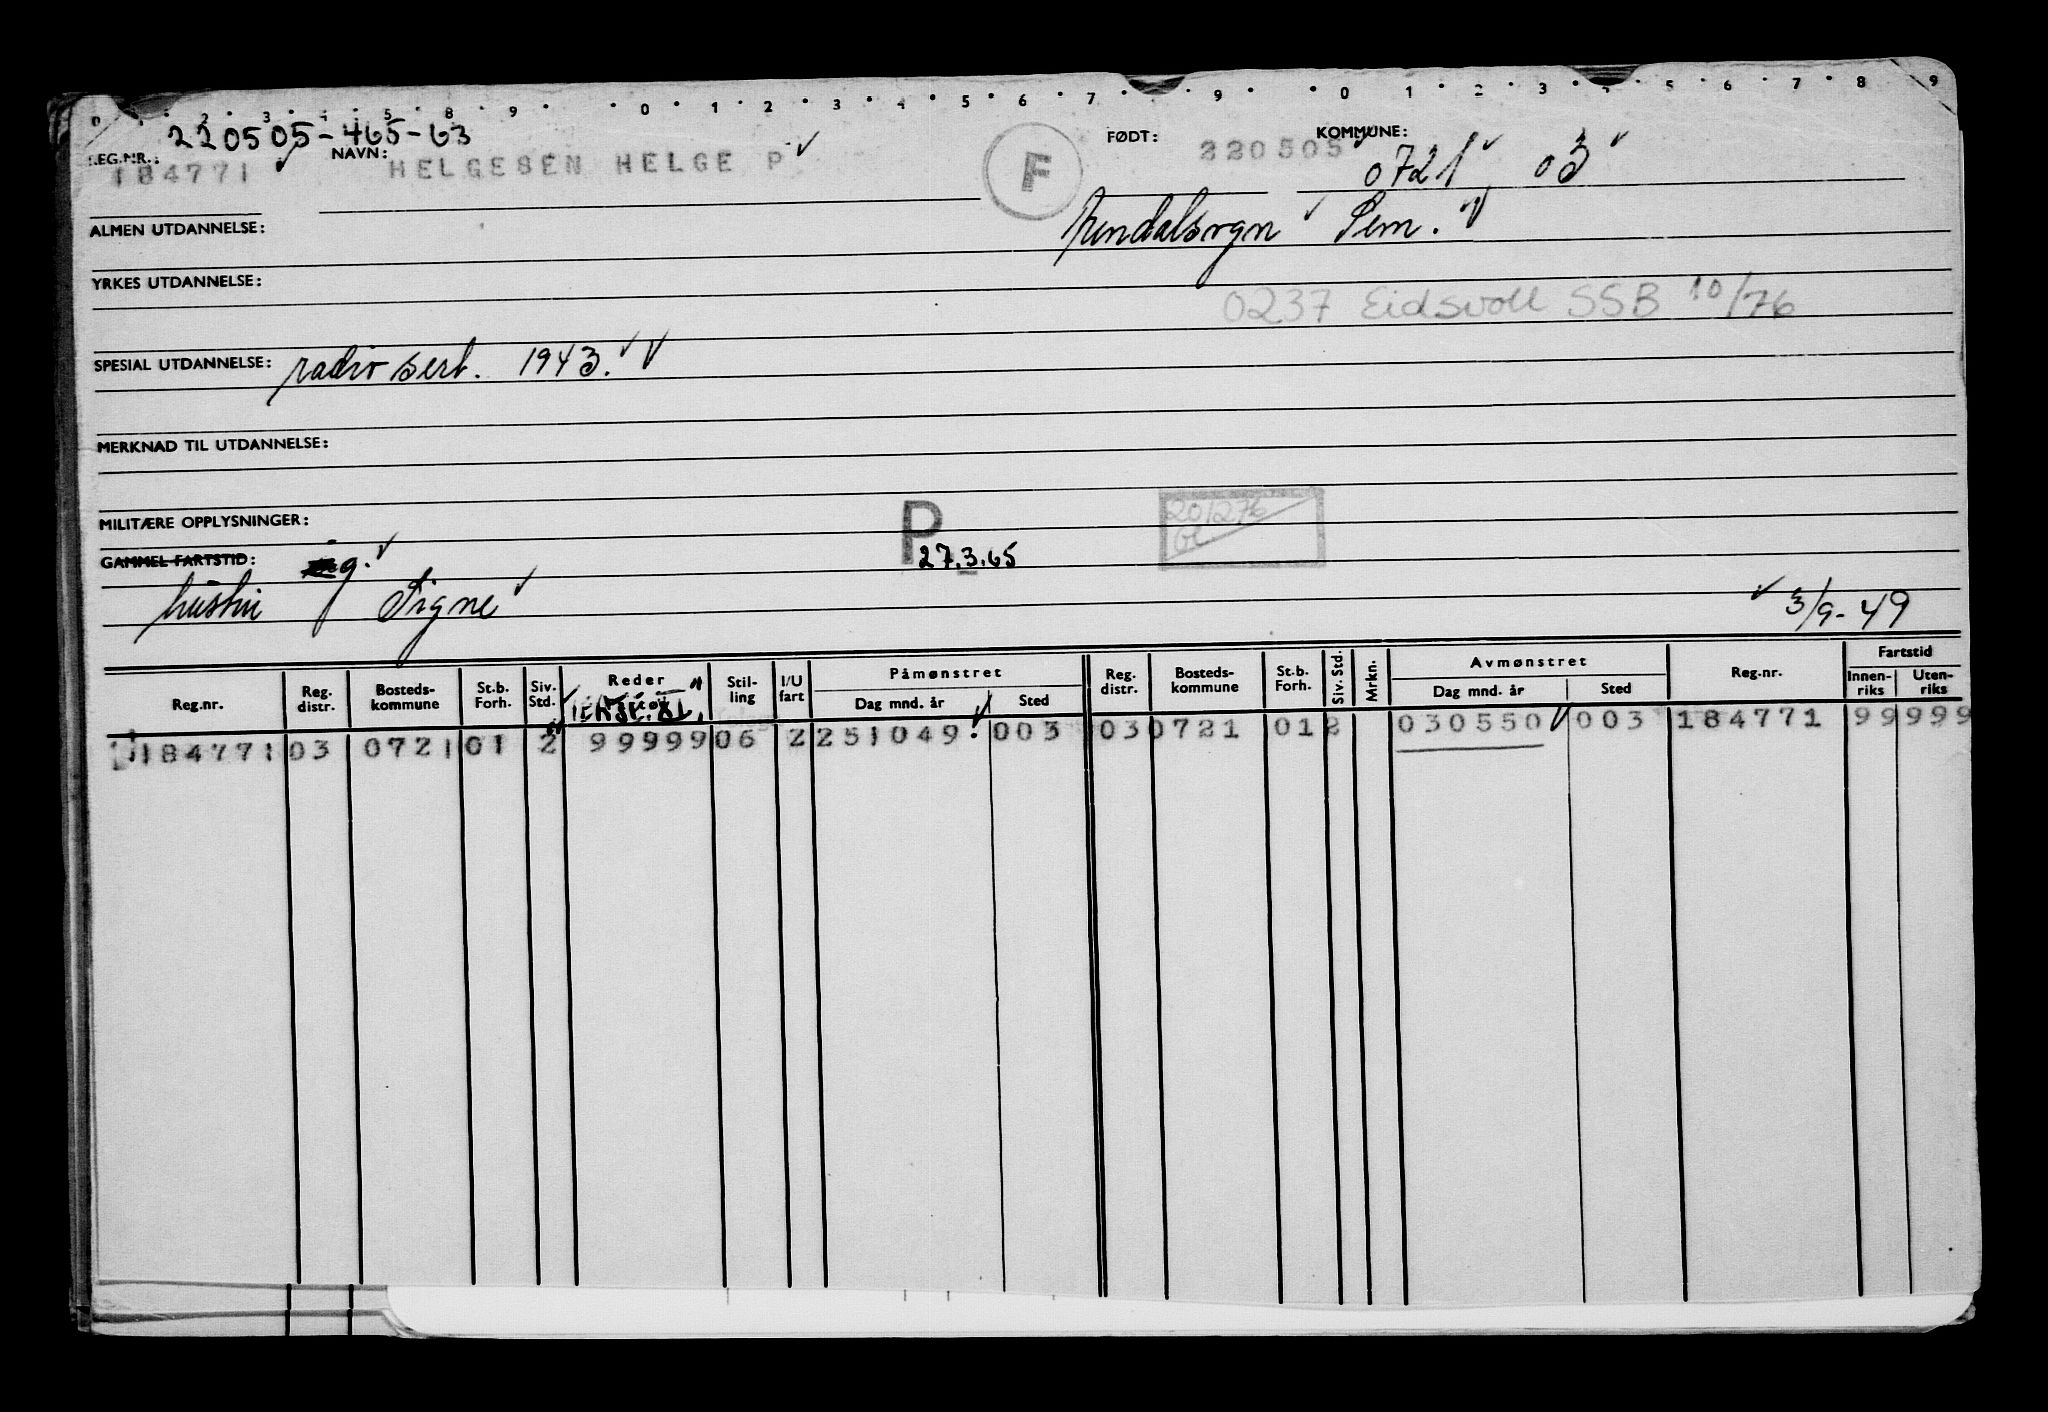 0 2 3 4 5 8 9 0 1 2 3 4 5 6 7 9 0 1 2 3 5 6 7 8 9
220505-465-63
REG.NR.: NAVN: FØDT: KOMMUNE:
184771 HELGESEN HELGE P F 220505 0721 03
ALMEN UTDANNELSE: Sem.
YRKES UTDANNELSE:
0237 Eidsvoll SSB 10/76
SPESIAL UTDANNELSE: radio sert. 1943.
MERKNAD TIL UTDANNELSE:
MILITÆRE OPPLYSNINGER: P 201276
GAMMEL FARTSTID: g. 27.3.65
hustru Signe 3/9-49
Reg.nr. Reg. distr. Bosteds-kommune St.b. Forh. Siv. Std. Reder Stil-ling I/U fart Påmønstret Dag mnd. år Sted Reg. distr. Bosteds-kommune St.b. Forh. Siv. Std. Mrkn. Avmønstret Dag mnd. år Sted Reg.nr. Fartstid Innen-riks Uten-riks
184771 03 0721 01 2 99999 06 2 251049 003 03 0721 01 2 030550 003 184771 99 999